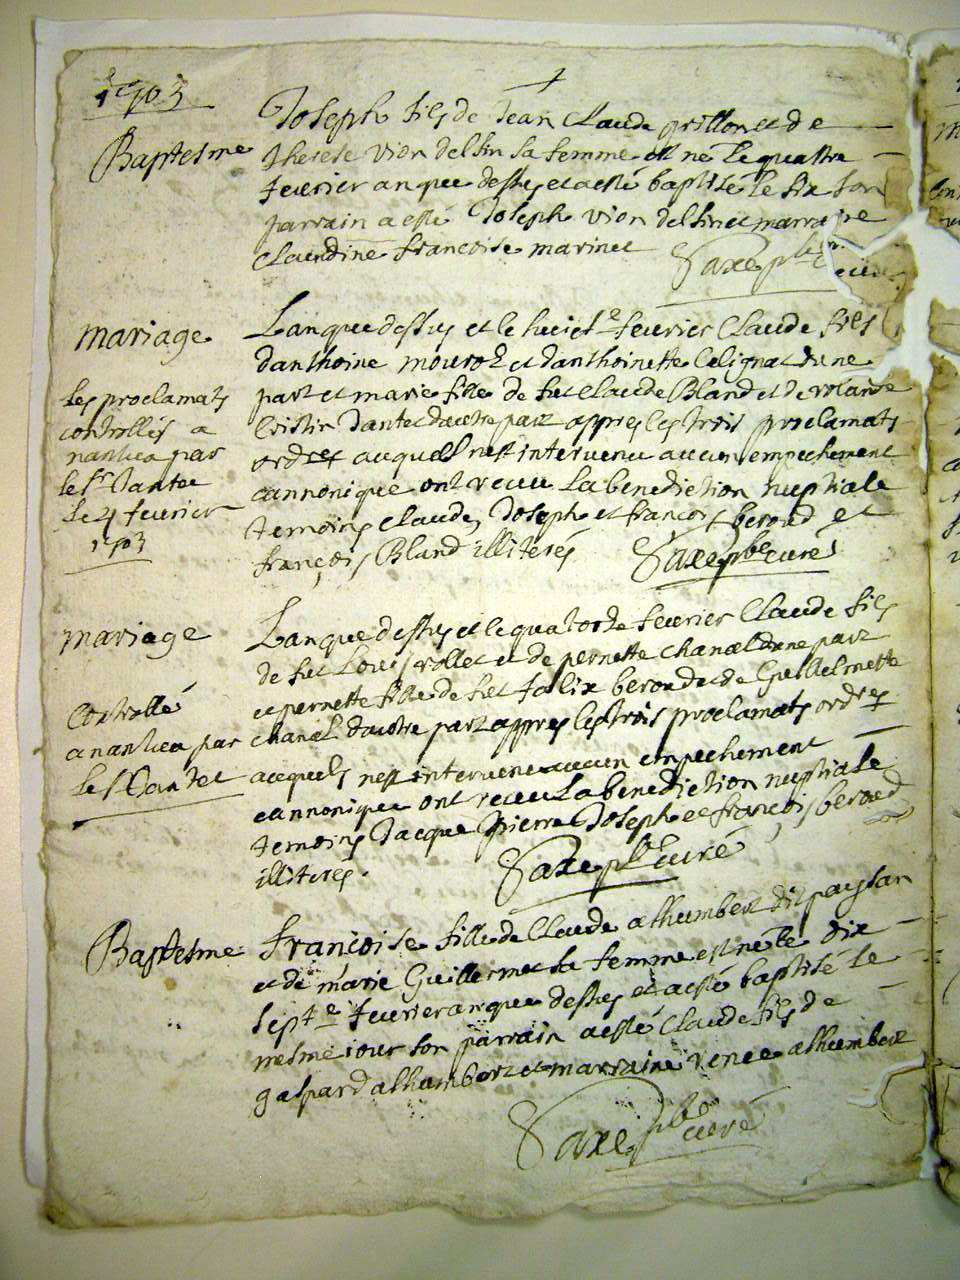 1703
Baptesme
Joseph fils de Jean Claude grillon et de
therese vion delsin sa femme est né le quattre
fevrier an que dessus et a esté baptisé le six son
parrain a esté Joseph vion delsin et marraine
Claudine francoise marinet
Saxe pbre curé
mariage
les proclamats
controllés a
nantua par
le Sr Tantet
le 4 fevrier
1703
Lanque dessus et le huict e fevrier Claude fils
danthoine mourot et danthoinette Celignat dune
part et marie fille de fut Claude Bland et de rolande
dautre part appres les trois proclamats
ordres auquels nest intervenu aucun empechement
cannonique ont receu La benediction nuptiale
temoins Claude, Joseph et francois beroud et
françois Bland illiterés
Saxe pbre curé
mariage
Controllé
a nantua par
le Sr Tantet
Lanque dessus et le quatorze fevrier Claude fils
de fut Louis rollet et de pernette chanal dune part
et pernette fille de fut falix beroud et de Guillelmette
chanal dautre part appres les trois proclamats ordres
auquels nest intervenu aucun empechement
cannonique ont receu La benediction nuptiale
temoins Jacque Pierre Joseph et françois beroud
illiterés.
Saxe pbre curé
Baptesme
francoise fille de Claude alhumbert dit paysan
et de marie Guillermet sa femme est née le dix
sept e fevrier an que dessus et a esté baptisé le
mesme iour son parrain a esté Claude fils de
gaspard alhumbert et marraine alhumbert
Saxe pbre curé